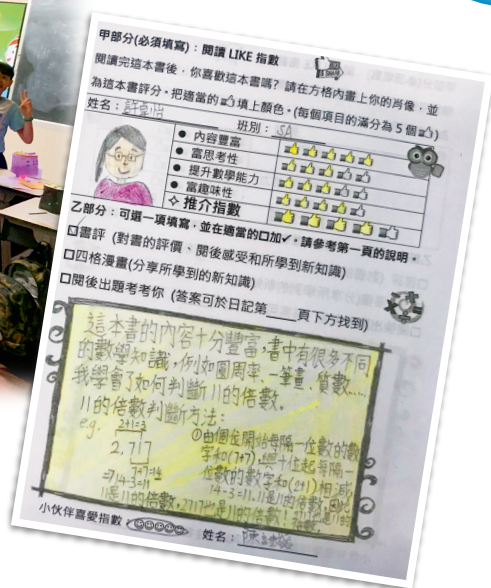 甲部分(必須填寫)：閱讀 LIKE 指數
閱讀完這本書後，你喜歡這本書嗎？請在方格內畫上你的肖像，並
為這本書評分。把適當的👍填上顏色。(每個項目的滿分為 5 個👍)
姓名：許卓怡 班別：5A
● 內容豐富
● 富思考性
● 提升數學能力
● 富趣味性
✧ 推介指數
乙部分：可選一項填寫，並在適當的口加✓。請參考第一頁的說明。
☑書評 (對書的評價、閱後感受和所學到新知識)
口四格漫畫(分享所學到的新知識)
口閱後出題考考你 (答案可於日記第____頁下方找到)
這本書的內容十分豐富，書中有很多不同
的數學知識，例如圓周率、一筆畫、質數...
我學會了如何判斷11的倍數。
11的倍數判斷方法：
e.g. 2+1=3
2,717
7+7=14
⇒14-3=11
①由個位開始每隔一位數的數
字和(7+7)，與十位起每隔一
位數的數字和(2+1)相減，
14-3=11，11是11的倍數，
11是11的倍數，2717也是11的倍數！
小伙伴喜愛指數：☺☺☺☺☺ 姓名：陳